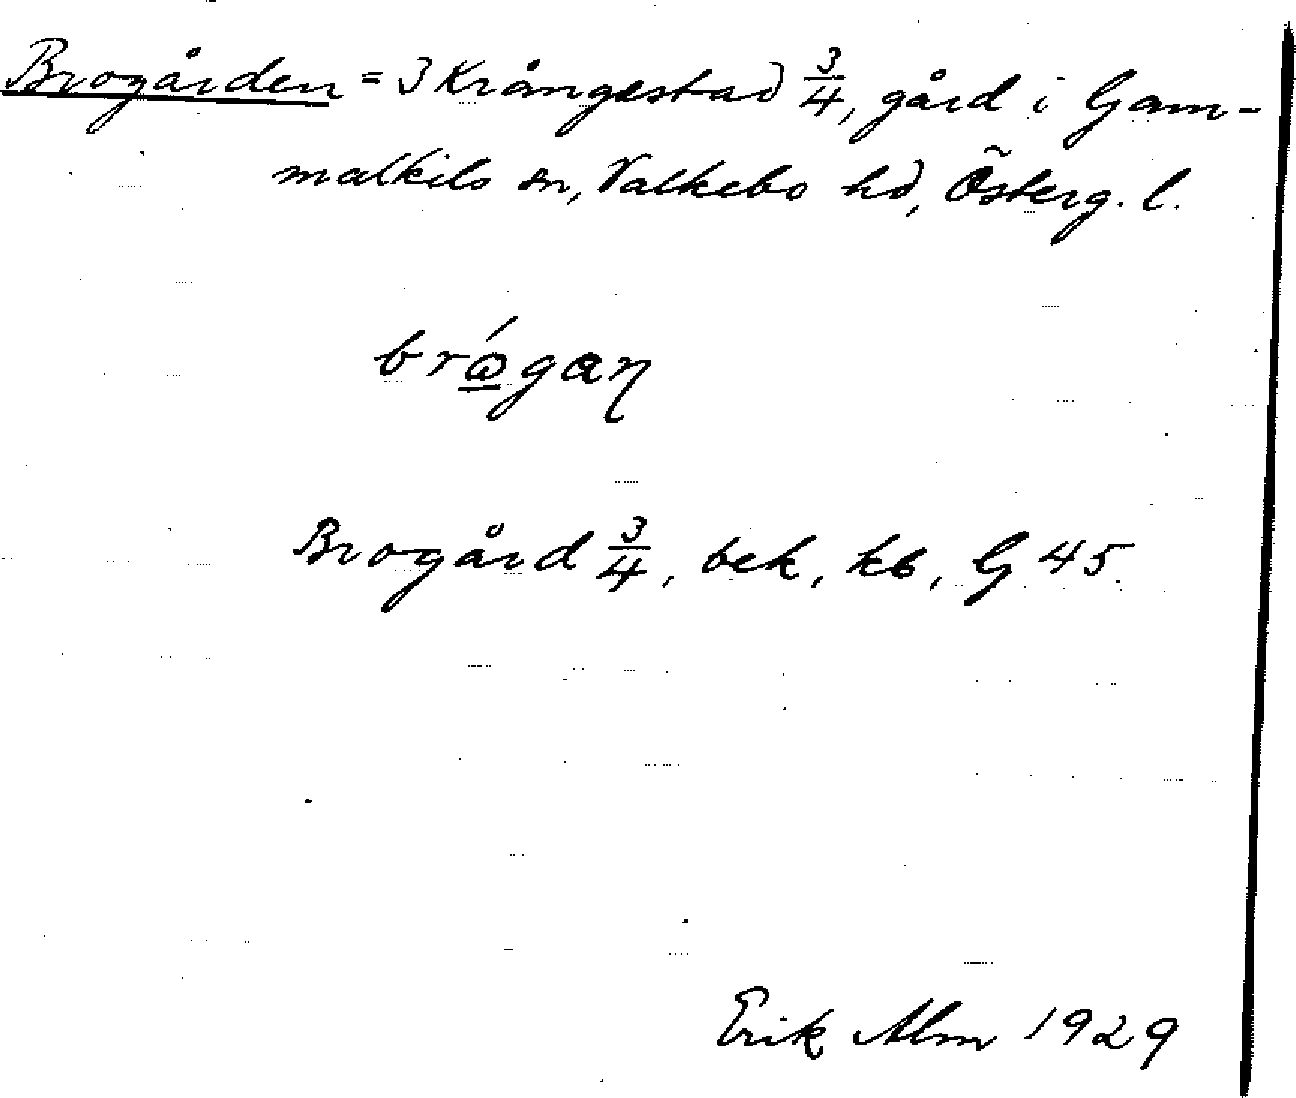 Brogården = 3 Krångestad 3/4, gård i Gam-
malkils sn, Valkebo hd, Österg. l.
brógaɳ
Brogård 3/4, bek, kb, G 45.
Erik Alm 1929